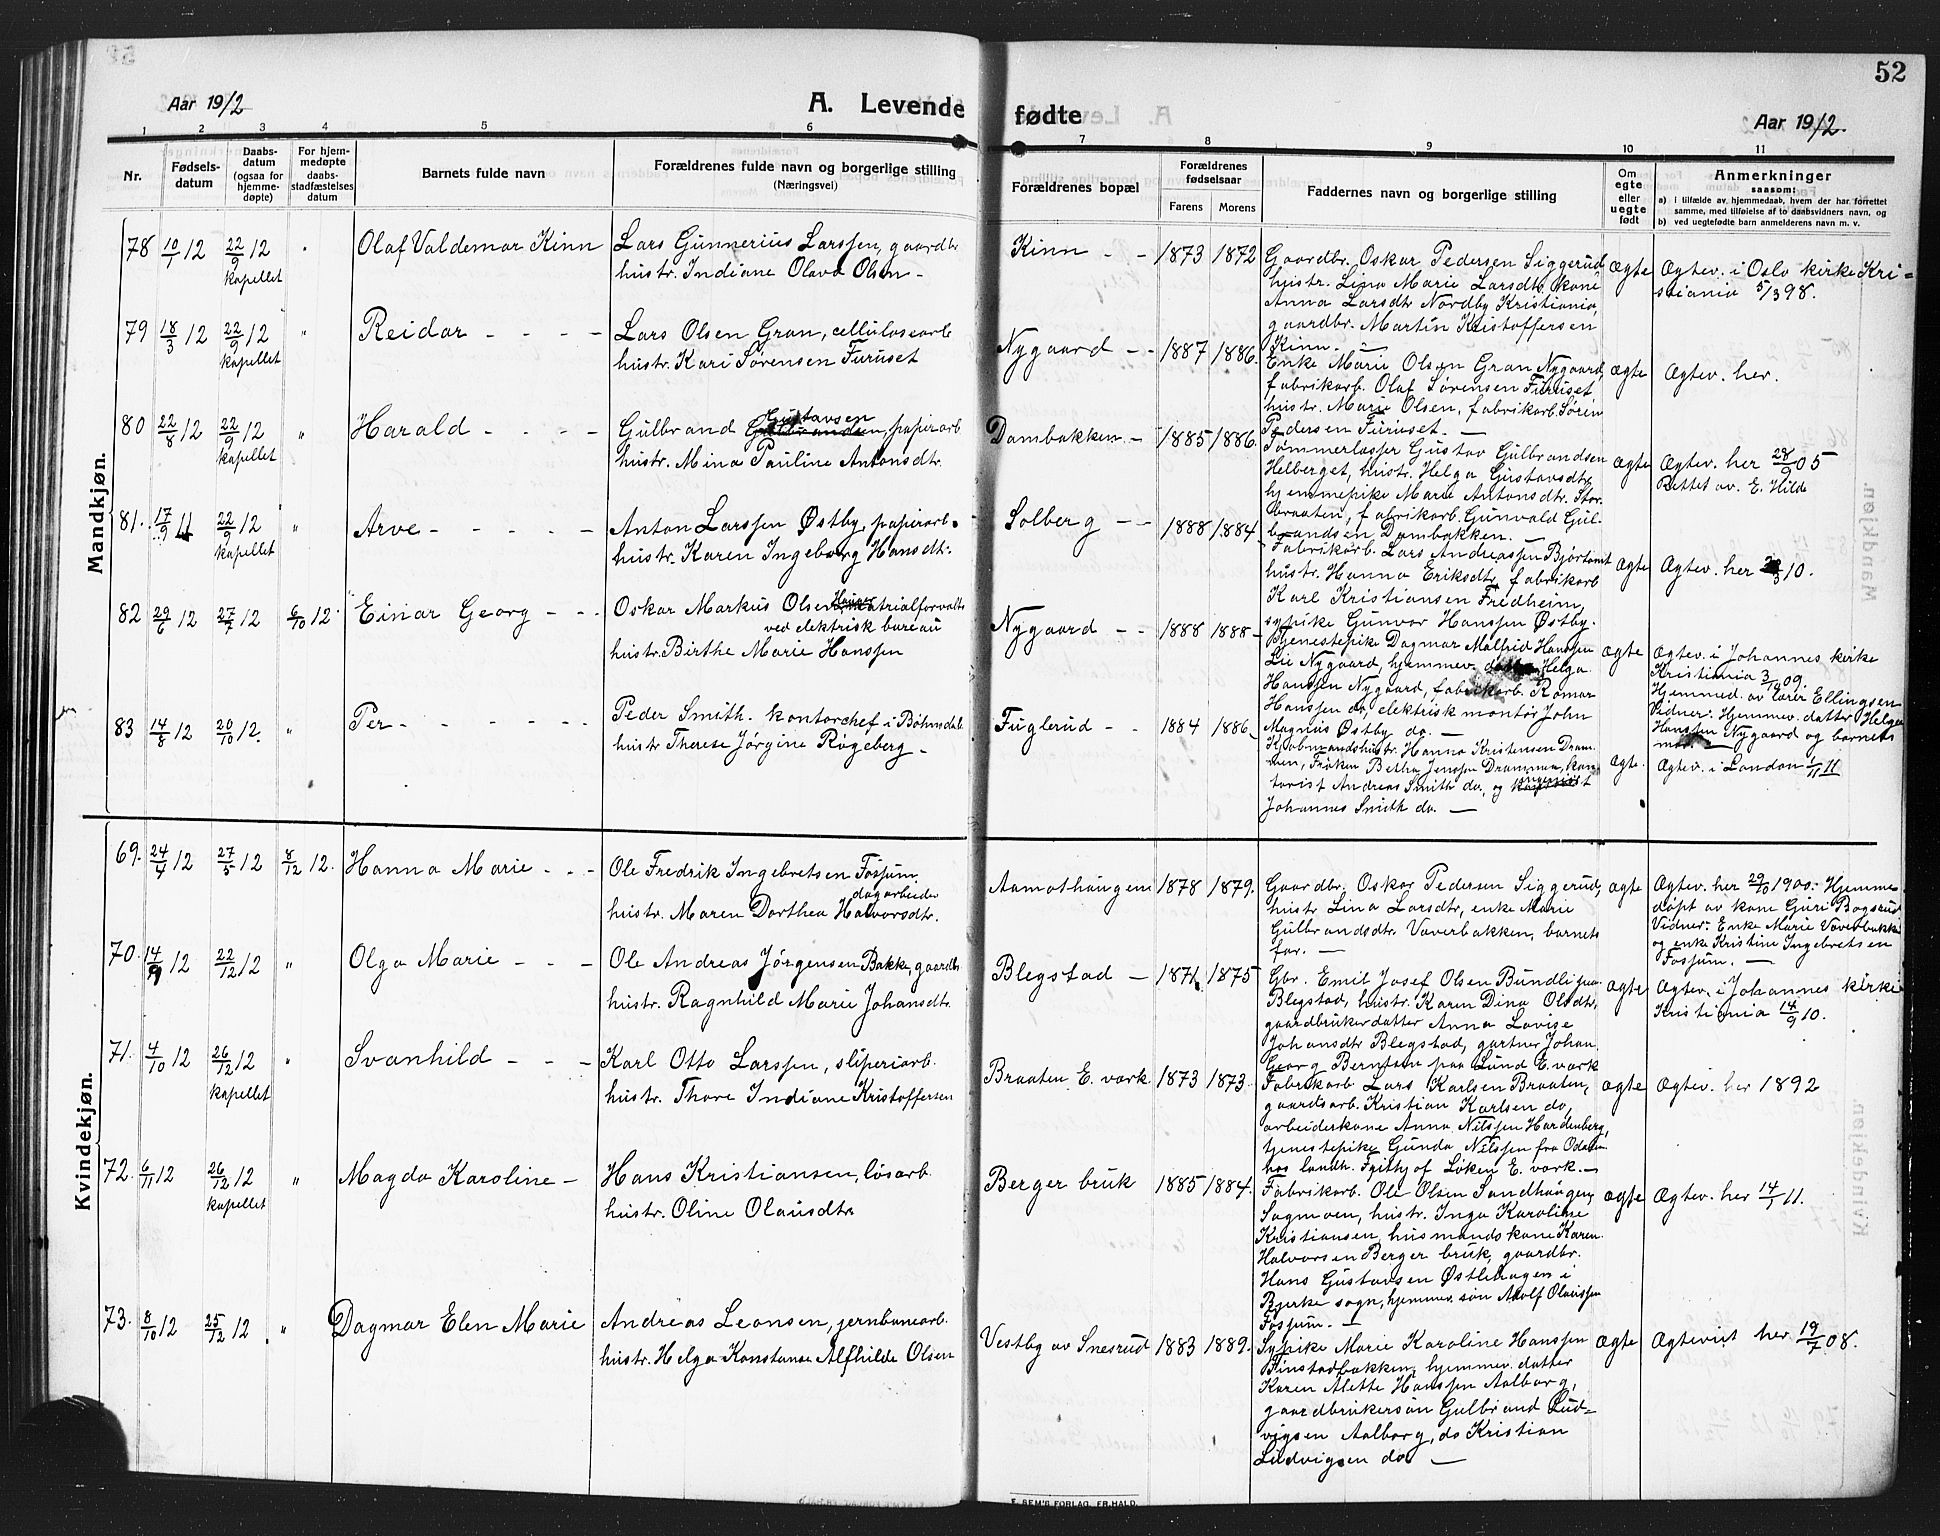 52
Aar 1912
A. Levende fødte
Aar 1912.
1 2 3 4 5 6 7 8 9 10 11
Nr.
Fødsels-
datum
Daabs-
datum
(ogsaa for
hjemme-
døpte)
For hjem-
medøpte
daabs-
stadfæstelses
datum
Barnets fulde navn
Forældrenes fulde navn og borgerlige stilling
(Næringsvei)
Forældrenes bopæl
Forældrenes
fødselsaar
Farens Morens
Faddernes navn og borgerlige stilling
Om
egte
eller
uegte
født
Anmerkninger
saasom:
a) i tilfælde av hjemmedaab, hvem der har forrettet
samme, med tilføielse af to daabsvidners navn, og
b) ved uegtefødte barn anmelderens navn m. v.
Mandkjøn.
78 10/1 12 22/9 12 " Olaf Valdemar Kinn
kapellet
Lars Gunnerius Larssen, gaardbr.
hustr. Indiane Olava Olsen -
Kinn - - 1873 1872
Gaardbr. Oskar Pedersen Siggerud,
hustr. Lina Marie Larsdtr. kone
Anna Larsdtr Nordby Kristiania,
gaardbr. Martin Kristoffersen
Kinn. -
ægte
Ægtev. i Oslo kirke Kri-
stiania 5/3 98.
79 18/3 12 22/9 12 " Reidar - - - -
kapellet
Lars Olsen Gran, cellulosearb.
hustr. Kari Sørensen Furuset
Nygaard - - 1887 1886.
Enke Marie Olsen Gran Nygaard,
fabrikarb. Olaf Sørensen Furuset
hustr. Marie Olsen, fabrikarb. Søren
Pedersen Furuset. -
ægte
Ægtev. her.
80 22/8 12 22/9 12 " Harald - - - -
kapellet
Gustavsen
Gulbrand Gulbrandsen, papirarb.
hustr. Mina Pauline Antonsdtr.
Dambakken - 1885 1886.
Tømmerlasser Gustav Gulbrandsen
Helberget, hustr. Helga Gustavsdtr,
hjemmepike Marie Antonsdtr. Stor-
braaten, fabrikarb. Gunvald Gul-
brandsen Dambakken. -
ægte
Ægtev. her 28/9 05
Rettet av. E. Hilde
81. 17/9 11 22/9 12 " Arve - - - - -
kapellet
Anton Larssen Østby, papirarb.
hustr. Karen Ingeborg Hansdtr.
Solberg - - 1888 1884
Fabrikarb. Lars Andreassen Bjørtomt
hustr. Hanna Eriksdtr, fabrikarb
Karl Kristiansen Fredheim,
sypike Gunvor Hanssen Østby.
ægte
Ægtev. her 10.
82 29/6 12 27/7 12 6/10 12. Einar Georg - - -
Oskar Markus Olsen materialforvalter
ved elektrisk bureau
hustr. Birthe Marie Hanssen
Nygaard - - 1888 1888-
Tjenestepike Dagmar Malfrid Hanssen
Lie Nygaard, hjemmev. datter Helga
Hanssen Nygaard, fabrikarb. Romar
Hanssen do, elektrisk montør John
Magnus Østby do. -
ægte
Ægtev. i Johannes kirke
Kristiania 3/10 09.
Hjemmed. av lærer Ellingsen
Vidner: Hjemmev. datter Helga
Hanssen Nygaard og barnets
mor. -
83 14/8 12 20/10 12. " Per - - - - - -
Peder Smith. kontorchef i Bøhnsdal.
hustr. Therese Jørgine Rogeberg -
Fuglerud - - 1884 1886-
Kjøbmandshustr. Hanna Kristensen Dram-
men, Frøken Betha Jenssen Drammen, kon-
torist Andreas Smith do, og
Johannes Smith do. -
ægte.
Ægtev. i London 1/11 11
Kvindekjøn.
69. 24/4 12 27/5 12 8/12 12. Hanna Marie - - -
Ole Fredrik Ingebretsen Fossum,
dagarbeider
hustr. Maren Dorthea Halvorsdtr.
Aamothaugen 1878 1879.
Gaardbr. Oskar Pedersen Siggerud,
hustr Lina Larsdtr, enke Marie
Gulbrandsdtr. Væverbakken, barnets
far. -
ægte
Ægtev. her 29/10 1900: Hjemme-
døpt av kone Guri Bogsrud
Vidner: Enke Marie Væverbakke
og enke Kristine Ingebretsen
Fossum. -
70. 14/9 12 22/12 12 " Olga Marie - -
Ole Andreas Jørgensen Bakke, gaardbr.
hustr. Ragnhild Marie Johansdtr.
Blegstad - 1871 1875
Gbr. Emil Josef Olsen Bundli paa
Blegstad, hustr. Karen Dina Olsdtr,
gaardbrukerdatter Anna Lovise
Johansdtr Blegstad, gartner Johan
Georg Berntsen paa Lund E. værk
ægte
Ægtev. i Johannes kirke
Kristiania 14/9 10.
71. 4/10 12 26/12 12 " Svanhild - - -
kapellet
Karl Otto Larssen, sliperiarb.
hustr. Thora Indiane Kristoffersen
Braaten E. værk 1873 1873.
Fabrikarb. Lars Karlsen Braaten,
gaardsarb. Kristian Karlsen do,
arbeiderkone Anna Nilssen Hardenberg,
tjenestepike Gunda Nilssen fra Odalen
hos landh. Fritjof Løken E. værk. -
ægte
Ægtev. her 1892
72. 6/11 12 26/12 12 " Magda Karoline -
kapellet
Hans Kristiansen, løsarb.
hustr. Oline Olausdtr
Berger bruk 1885 1884.
Fabrikarb. Ole Olsen Sandhaugen,
Sagmoen, hustr. Inga Karoline
Kristiansen, husmandskone Karen
Halvorsen Berger bruk, gaardbr.
Hans Gustavsen Østlihagen i
Bjerke sogn, hjemmev. søn Adolf Olaussen
Fossum. -
ægte
Ægtev. her 14/1 11.
73. 8/10 12 25/12 12. " Dagmar Elen Marie
Andreas Leonsen, jernbanearb.
hustr. Helga Konstanse Alfhilde Olsen
Vestby av Snesrud 1883 1889.
Sypike Marie Karoline Hanssen
Finstadbakken, hjemmev. datter
Karen Alette Hanssen Aalborg,
gaardbrukersøn Gulbrand Lud-
vigsen Aalborg, do Kristian
Ludvigsen do -
ægte
Ægteviet her 19/7 08.
E. SEM'S FORLAG, FR.HALD.